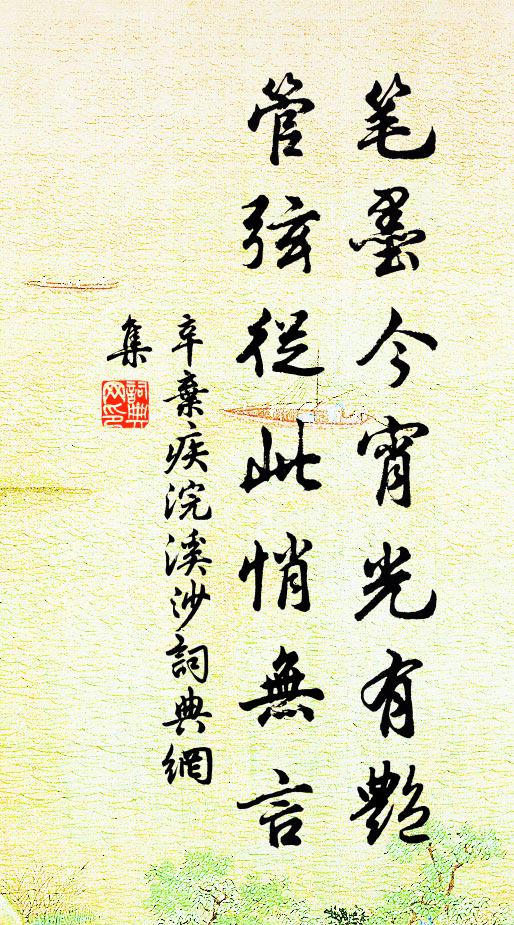 笔墨今宵光有艷
管弦從此悄無言
辛棄疾浣溪沙詞典網
集
詞典
网印